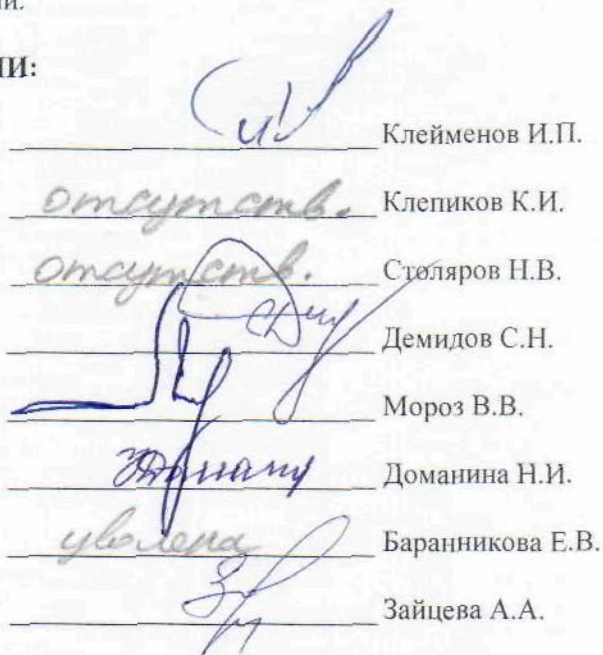 ии.
ИИ:
Клейменов И.П.
отсутств. Клепиков К.И.
отсутств. Столяров Н.В.
Демидов С.Н.
Мороз В.В.
Доманина Н.И.
уволена Баранникова Е.В.
Зайцева А.А.